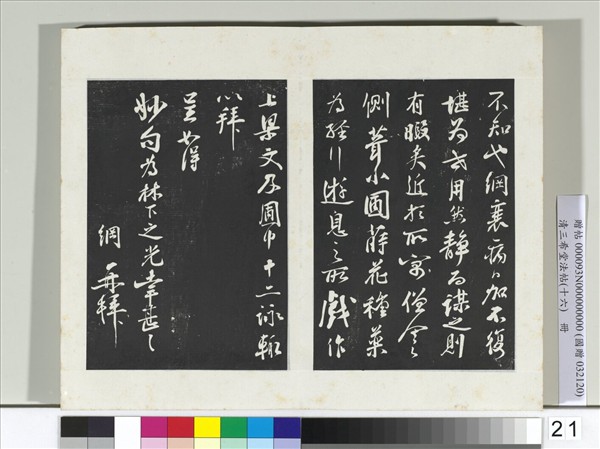 不知也綱衰病日加不復
堪為世用然靜而謀之則
有暇矣近於所寓僧舍之
側葺小圃蒔花種藥
為經行遊息之所戲作
上梁文及圃中十二詠輒
以拜
呈如得
妙句為林下之光幸甚之
綱 再拜
贈帖 000093N000000000 (國贈 032120)
清三希堂法帖(十六) 冊
21